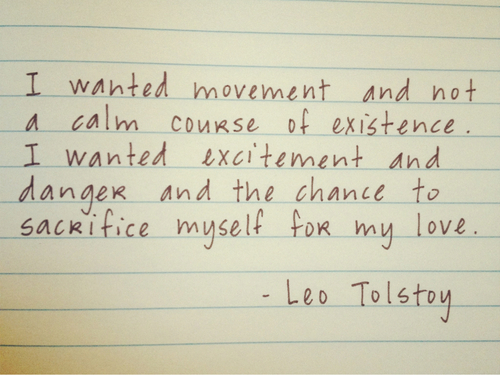 I wanted movement and not
a calm course of existence.
I wanted excitement and
danger and the chance to
sacrifice myself for my love.
- Leo Tolstoy